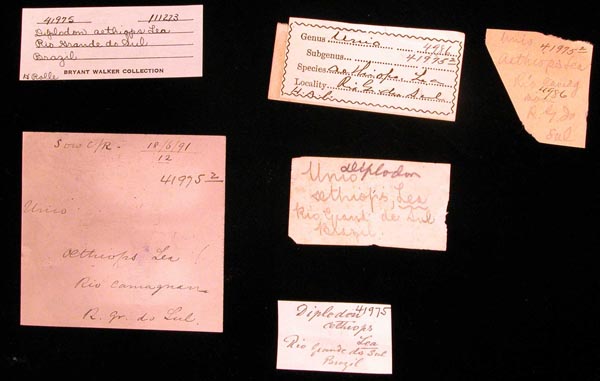 41975 111223
Diplodon aethiops Lea
Rio Grande do Sul
Brazil
BRYANT WALKER COLLECTION
Genus Unio
4986
Subgenus 41975.2
Species aethiops Lea
Locality Rio G. do Sul
Unio 41975 2
aethiops Lea
Rio
4986
R. G. do
Sul
18/6/91
12
41975 2
Unio
aethiops Lea !
Rio Camaquan
R. Gr. do Sul.
Unio Diplodon
aethiops, Lea
Rio Grand de Sul
Brazil.
41975
Diplodon
aethiops
Lea
Rio Grande do Sul
Brazil